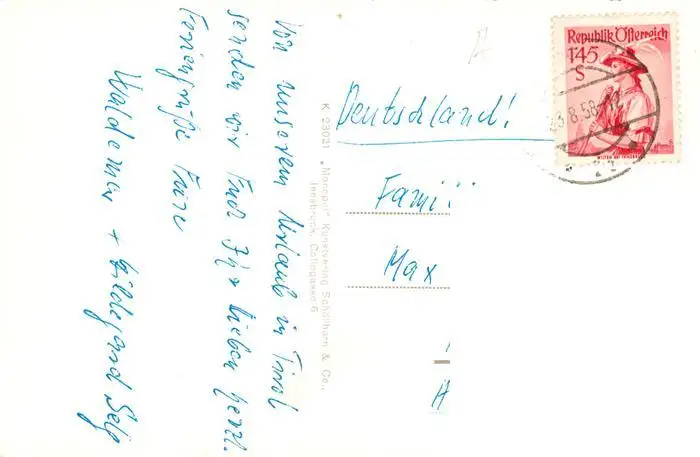 Von unserem Urlaub in Tirol
senden wir Euch Ihr Lieben herzl.
Feriengrüße Eure
Waldemar + Hildegard
K 23021 „Monopol" Kunstverlag Schöllhorn & Co.,
Innsbruck, Colingasse 6
Republik Österreich
1·45
S
WILTEN BEI INNSBRUCK
23.8.58
Deutschland!
Famili
Max
A